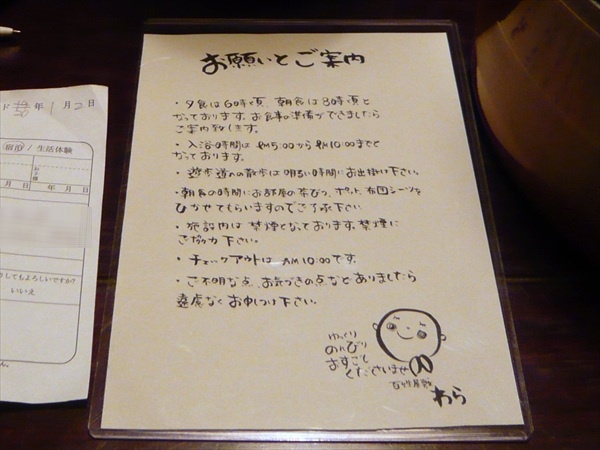 お願いとご案内
・夕食は6時頃、朝食は8時頃と
なっております。お食事の準備ができましたら
ご案内致します。
・入浴の時間は PM5:00から PM10:00までと
なっております。
・遊歩道への散歩は明るい時間にお出掛け下さい。
・朝食の時間にお部屋の茶びつ、ポット、布団シーツを
ひかせてもらいますのでご了承下さい
・施設内は禁煙となっております。禁煙に
ご協力下さい。
・チェックアウトは AM10:00です。
・ご不明な点、お気づきの点などありましたら
遠慮なくお申しつけ下さい。
ゆっくり
のんびり
おすごし
くださいませ
わら
年1月2日
/ 生活体験
月 日
年 月 日
してもよろしいですか?
いいえ